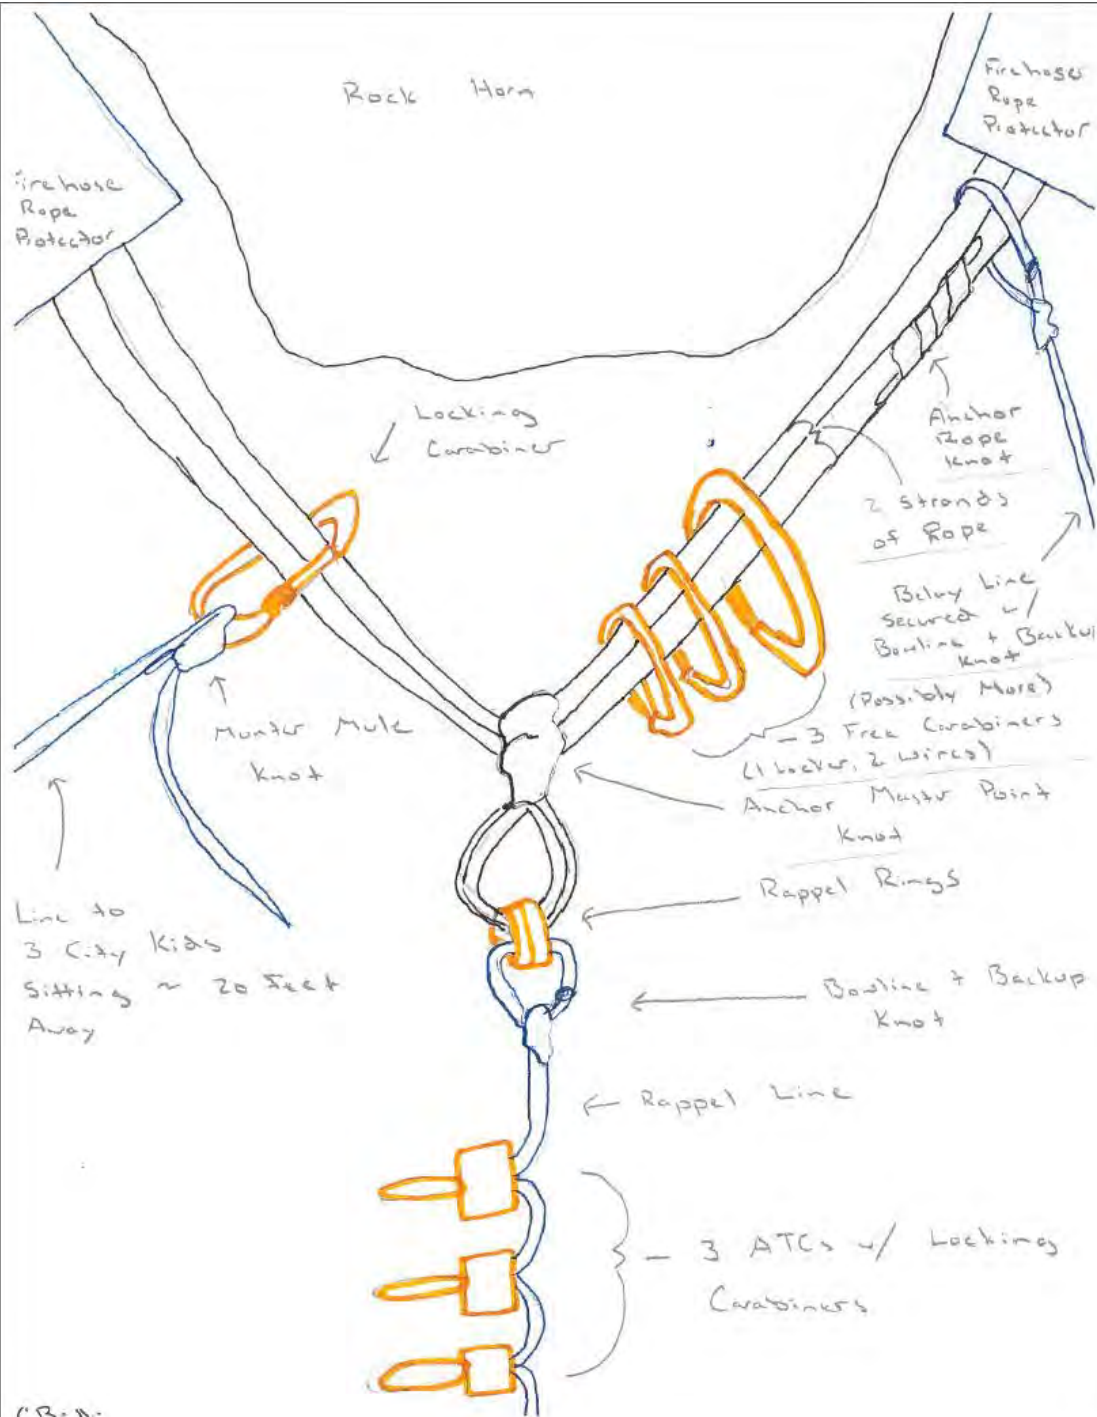 Rock Horn
Firehose
Rope
Protector
Firehose
Rope
Protector
Locking
Carabiner
Anchor
Rope
Knot
2 Strands
of Rope
Belay Line
Secured w/
Bowline + Backup
Knot
(Possibly More)
- 3 Free Carabiners
(1 Locker, 2 Wires)
Munter Mule
Knot
Anchor Master Point
Knot
Rappel Rings
Line to
3 City Kids
Sitting ~ 20 Feet
Away
Bowline + Backup
Knot
Rappel Line
- 3 ATCs w/ Locking
Carabiners